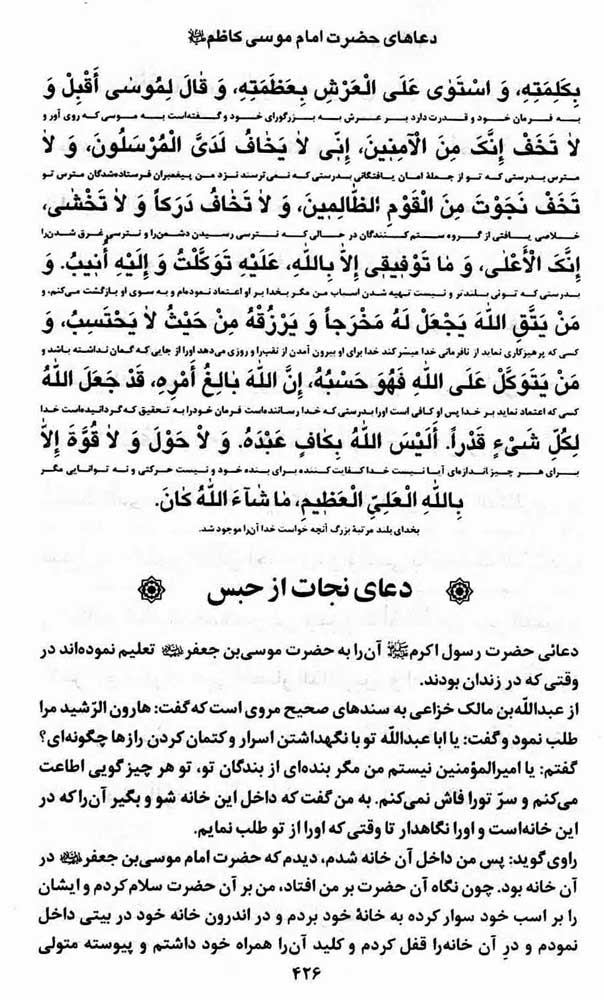 دعاهای حضرت امام موسی کاظم علیه‌السلام
بِکَلِمَتِهِ، وَ اسْتَوٰی عَلَی الْعَرْشِ بِعَظَمَتِهِ، وَ قٰالَ لِمُوسٰی أَقْبِلْ وَ
به فرمان خود و قدرت دارد بر عرش به بزرگواری خود و گفته‌است به موسی که روی آور و
لاٰ تَخَفْ إِنَّکَ مِنَ الْآمِنِینَ، إِنّی لاٰ یَخٰافُ لَدَیَّ الْمُرْسَلُونَ، وَ لاٰ
مترس بدرستی که تو از جمله امان یافتگانی بدرستی که نمی‌ترسند نزد من پیغمبران فرستاده‌شدگان مترس تو
تَخَفْ نَجَوْتَ مِنَ الْقَوْمِ الظّٰالِمِینَ، وَ لاٰ تَخٰافُ دَرَکاً وَ لاٰ تَخْشٰی،
خلاصی یافتی از گروه ستم کنندگان در حالی که نترسی رسیدن دشمن‌را و نترسی غرق شدن‌را
إِنَّکَ الْأَعْلٰی، وَ مٰا تَوْفِیقِی إِلاّٰ بِاللهِ، عَلَیْهِ تَوَکَّلْتُ وَ إِلَیْهِ أُنِیبُ. وَ
بدرستی که توئی بلندتر و نیست تهیه شدن اسباب من مگر بخدا بر او اعتماد نموده‌ام و به سوی او بازگشت می‌کنم، و
مَنْ یَتَّقِ اللهَ یَجْعَلْ لَهُ مَخْرَجاً وَ یَرْزُقْهُ مِنْ حَیْثُ لاٰ یَحْتَسِبُ، وَ
کسی که پرهیزکاری نماید از نافرمانی خدا میسر کند خدا برای او بیرون آمدن از تعب‌را و روزی می‌دهد اورا از جایی که گمان نداشته باشد و
مَنْ یَتَوَکَّلْ عَلَی اللهِ فَهُوَ حَسْبُهُ، إِنَّ اللهَ بٰالِغُ أَمْرِهِ، قَدْ جَعَلَ اللهُ
کسی که اعتماد نماید بر خدا پس او کافی است اورا بدرستی که خدا رساننده‌است فرمان خودرا به تحقیق که گردانیده‌است خدا
لِکُلِّ شَیْءٍ قَدْراً. أَلَیْسَ اللهُ بِکٰافٍ عَبْدَهُ. وَ لاٰ حَوْلَ وَ لاٰ قُوَّةَ إِلاّٰ
برای هر چیز اندازه‌ای آیا نیست خدا کفایت کننده برای بنده خود و نیست حرکتی و نه توانایی مگر
بِاللهِ الْعَلِیِّ الْعَظِیمِ، مٰا شٰآءَ اللهُ کٰانَ.
بخدای بلند مرتبهٔ بزرگ آنچه خواست خدا آن‌را موجود شد.
دعای نجات از حبس
دعائی حضرت رسول اکرم ﷺ آن‌را به حضرت موسی‌بن جعفر علیه‌السلام تعلیم نموده‌اند در
وقتی که در زندان بودند.
از عبدالله‌بن مالک خزاعی به سندهای صحیح مروی است که گفت: هارون الرّشید مرا
طلب نمود و گفت: یا ابا عبدالله تو با نگهداشتن اسرار و کتمان کردن رازها چگونه‌ای؟
گفتم: یا امیرالمؤمنین نیستم من مگر بنده‌ای از بندگان تو، تو هر چیز گویی اطاعت
می‌کنم و سرّ تورا فاش نمی‌کنم. به من گفت که داخل این خانه شو و بگیر آن‌را که در
این خانه‌است و اورا نگاهدار تا وقتی که اورا از تو طلب نمایم.
راوی گوید: پس من داخل آن خانه شدم، دیدم که حضرت امام موسی‌بن جعفر علیه‌السلام در
آن خانه بود. چون نگاه آن حضرت بر من افتاد، من بر آن حضرت سلام کردم و ایشان
را بر اسب خود سوار کرده به خانهٔ خود بردم و در اندرون خانه خود در بیتی داخل
نمودم و درِ آن خانه‌را قفل کردم و کلید آن‌را همراه خود داشتم و پیوسته متولی
۴۲۶